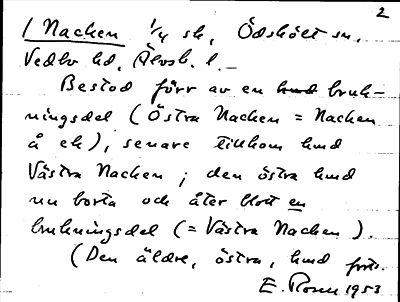 2
1 Nacken 1/4 sk, Ödskölt sn,
Vedbo hd, Älvsb. l. –
Bestod förr av en hmd bruk-
ningsdel (Östra Nacken = Nacken
å ek), senare tillkom hmd
Västra Nacken; den östra hmd
nu borta och åter blott en
brukningsdel (= Västra Nacken).
(Den äldre, östra, hmd
E. Rosell 1953